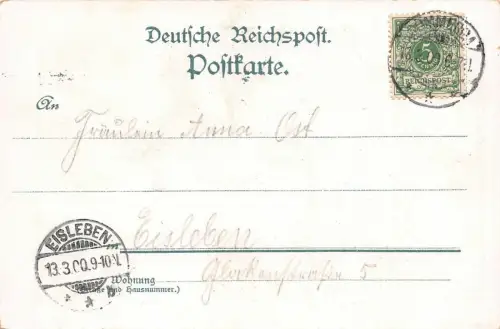 Deutsche Reichspost.
Postkarte.
5
REICHSPOST
An
Fräulein Anna Ost
EISLEBEN
13.3.00.9-10V.
Eisleben
Wohnung
(Straße und Hausnummer.)
Glockenstraße 5